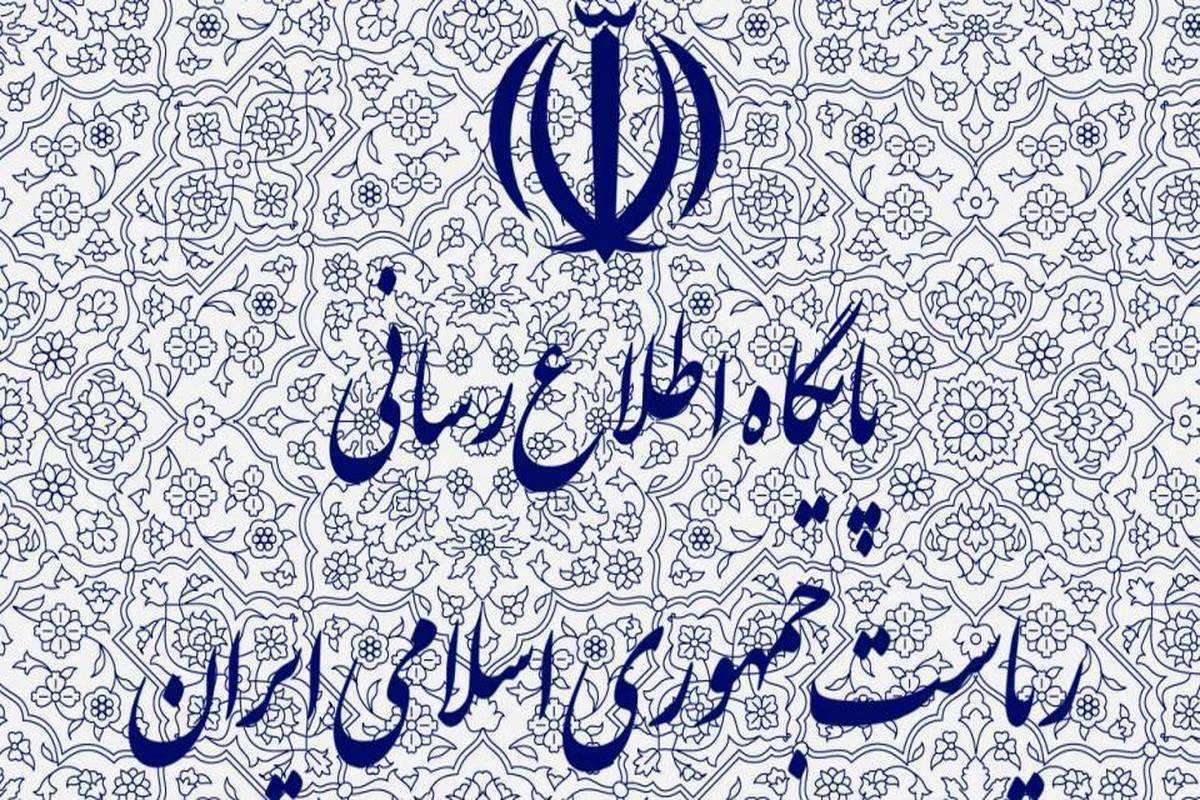 پایگاه اطلاع رسانی
ریاست جمهوری اسلامی ایران